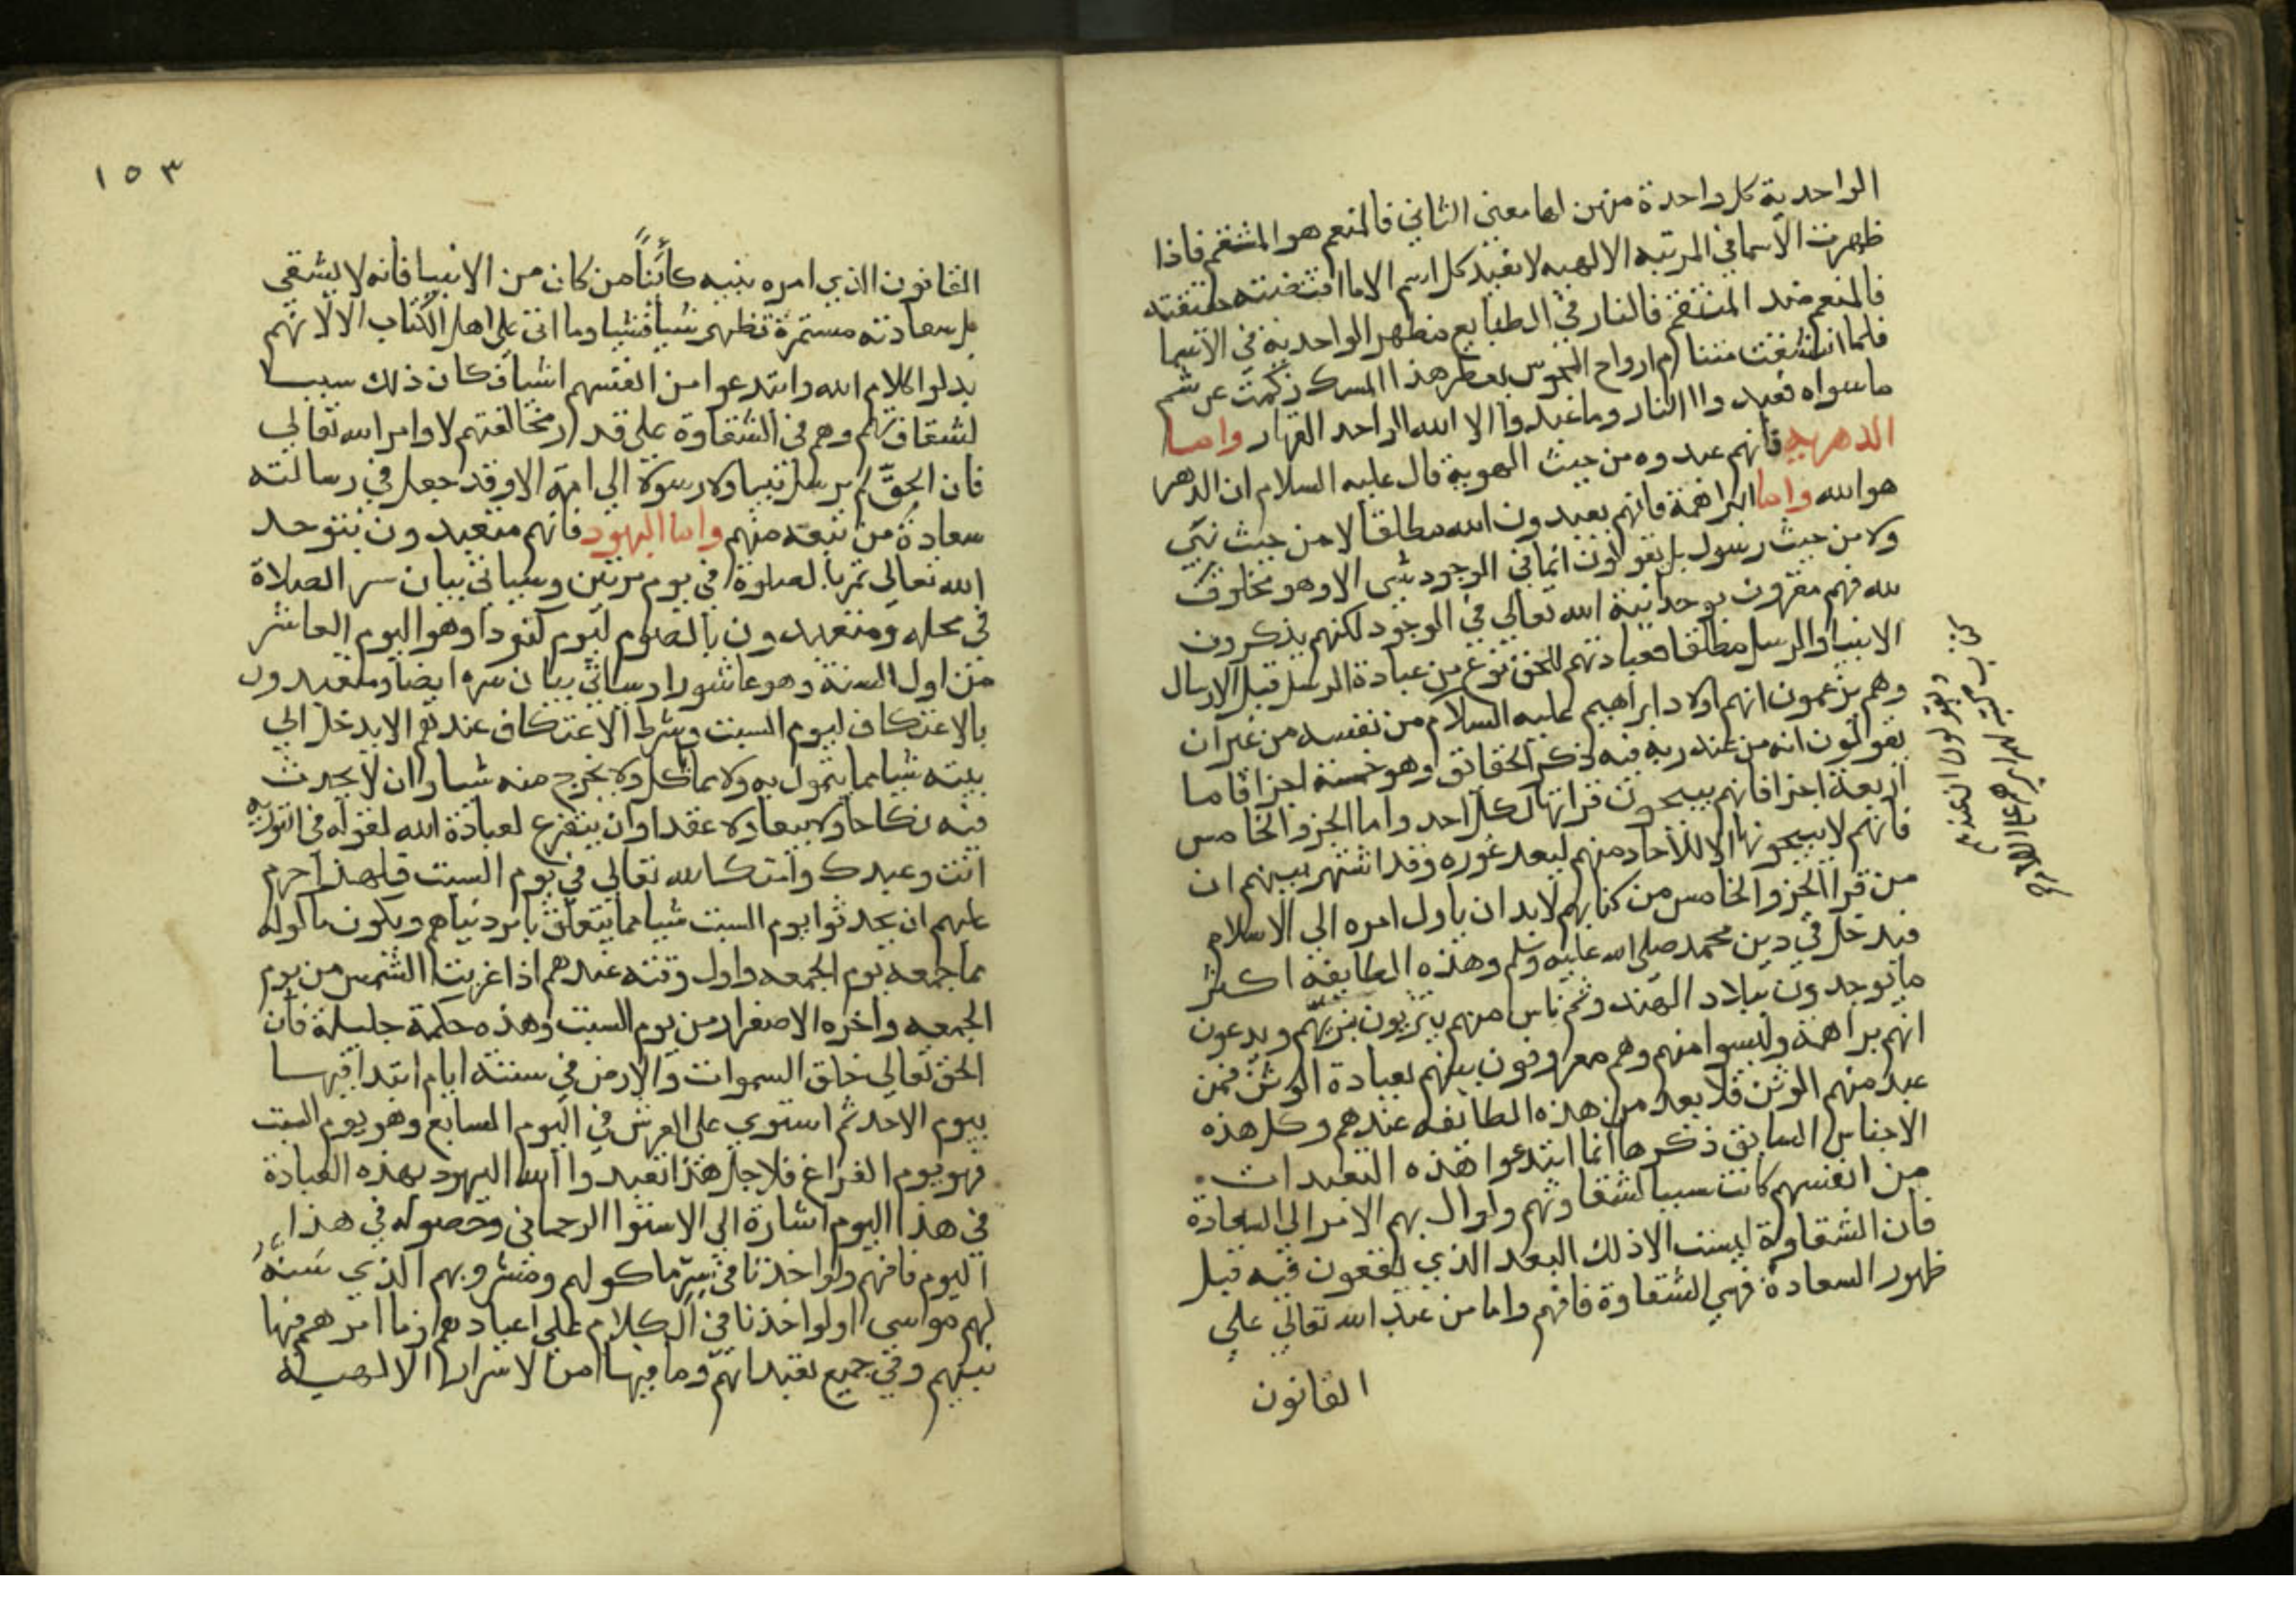 الواحدية كل واحدة منهن لها معنى الثاني فالمنعم هو المنتقم فاذا
ظهرت الاسما في المرتبه الالهيه لا يفيد كل اسم الا ما اقتضته حقيقته
فالمنعم ضد المنتقم فالنار في الطبايع مظهر الواحدية في الاسما
فلما انتشقت مشام ارواح المجوس بعطر هذا المسك زكمت عن شم
ما سواه فعبدوا النار وما عبدوا الا الله الواحد القهار واما
الدهريه فانهم عبدوه من حيث الهوية قال عليه السلام ان الدهر
هو الله واما البراهمة فانهم يعبدون الله مطلقا لا من حيث نبي
ولا من حيث رسول بل يقولون انما في الوجود شي الا وهو مخلوق
لله فهم مقرون بوحدانية الله تعالى في الوجود لكنهم ينكرون
الانبيا والرسل مطلقا فعبادتهم للحق نوع من عبادة الرسل قبل الارسال
وهم يزعمون انهم اولاد ابراهيم عليه السلام من نفسه من غير ان
يقولون انه من عند ربه فيه ذكر الحقائق وهو خمسة اجزا فاما
اربعة اجزا فانهم يبيحون قراتها لكل احد واما الجزو الخامس
فانهم لا يبيحونها الا للآحاد منهم لبعد غوره وقد اشتهر بينهم ان
من قرا الجزو الخامس من كتابهم لا بد ان ياول امره الى الاسلام
فيدخل في دين محمد صلى الله عليه وسلم وهذه الطايفة اكثر
ما يوجدون ببلاد الهند وثم ناس منهم يتزيون بزيهم ويدعون
انهم براهمة وليسوا منهم وهم معروفون بينهم بعبادة الوثن فمن
عبد منهم الوثن فلا يعد من هذه الطائفه عندهم وكل هذه
الاجناس السابق ذكرها انما ابتدعوا هذه التعبدات
من انفسهم كانت سببا لشقاوتهم ولو ال بهم الامر الى السعادة
فان الشقاوة ليست الا ذلك البعد الذي يقعون فيه قبل
ظهور السعادة فهي الشقاوة فافهم واما من عبد الله تعالى على
القانون
ويقولون ان عندهم
كتاب كتبه لهم ابراهيم عليه السلام
١٥٣
القانون الذي امره بنبيه كائناً من كان من الانبيا فانه لا يشقى
بل سعادته مستمرة تظهر شيا فشيا وما اتى على اهل الكتاب الا لانهم
بدلوا كلام الله وابتدعوا من انفسهم اشيا فكان ذلك سببا
لشقاوتهم وهم في الشقاوة على قدر مخالفتهم لاوامر الله تعالى
فان الحقَّ لم يرسل نبيا ولا رسولا الى امة الا وقد جعل في رسالته
سعادة من تبعه منهم واما اليهود فانهم متعبدون بتوحيد
الله تعالى ثم بالصلوة في يوم مرتين وسياتي بيان سر الصلاة
في محله ومتعبدون بالصوم ليوم كنورا وهو اليوم العاشر
من اول السنة وهو عاشورا وسياتي بيان سره ايضا ومتعبدون
بالاعتكاف ليوم السبت وشرط الاعتكاف عندهم الا يدخل الى
بيته شيا مما يتمول به ولا مما يوكل ولا يخرج منه شيا وان لا يحدث
فيه نكاحا ولا بيعا ولا عقدا وان يتفرغ لعبادة الله لقوله في التوراية
انت وعبدك وامتك لله تعالى في يوم السبت فلهذا حرم
عليهم ان يحدثوا يوم السبت شيا مما يتعلق بامر دنياهم ويكون ماكوله
مما جمعه يوم الجمعه واول وقته عندهم اذا غربت الشمس من يوم
الجمعه وآخره الاصفرار من يوم السبت وهذه حكمة جليلة فان
الحق تعالى خلق السموات والارض في ستة ايام ابتدا فيها
بيوم الاحد ثم استوى على العرش في اليوم السابع وهو يوم السبت
فهو يوم الفراغ فلاجل هذا تعبدوا الله اليهود بهذه العبادة
في هذا اليوم اشارة الى الاستوا الرحماني وحصوله في هذا
اليوم فافهم ولو اخذنا في سرّ ماكولهم ومشروبهم الذي سَنّهُ
لهم موسى او لو اخذنا في الكلام على اعيادهم وما امرهم فيها
نبيهم وفي جميع تعبداتهم وما فيها من الاسرار الالهية